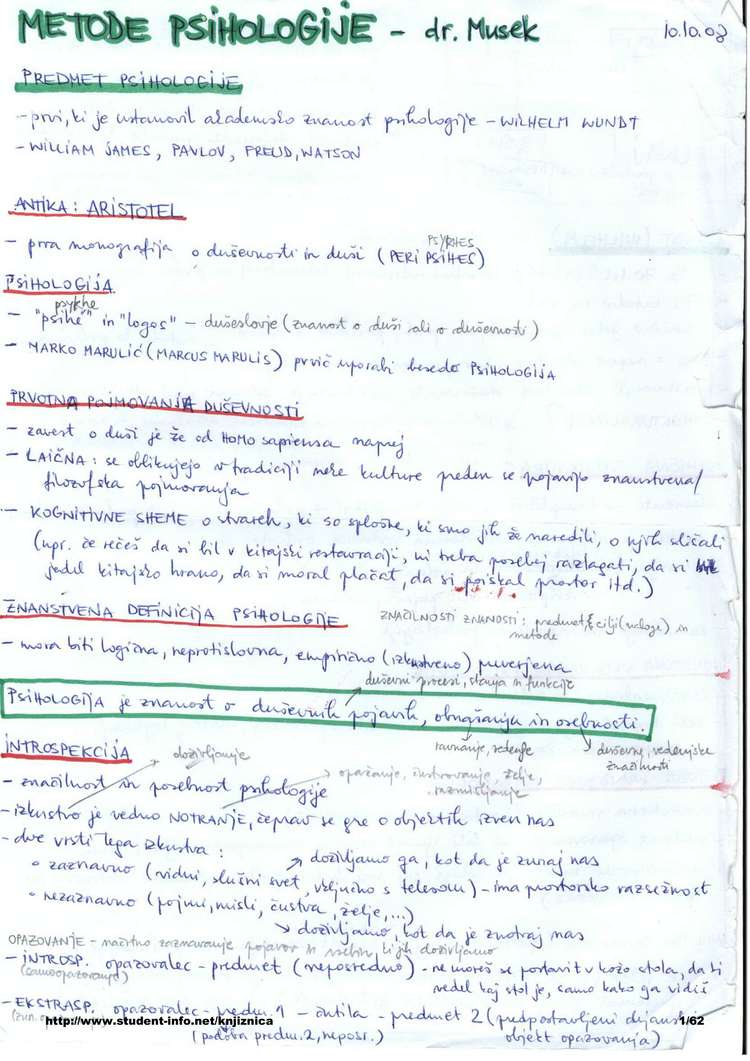 METODE PSIHOLOGIJE - dr. Musek 10.10.08
PREDMET PSIHOLOGIJE
- prvi, ki je ustanovil akademsko znanost psihologije - WILHELM WUNDT
- WILLIAM JAMES, PAVLOV, FREUD, WATSON
ANTIKA: ARISTOTEL
PSYKHES
- prva monografija o duševnosti in duši (PERI PSIHES)
PSIHOLOGIJA
psykhe
- "psihé" in "logos" - dušeslovje (znanost o duši ali o duševnosti)
- MARKO MARULIĆ (MARCUS MARULIS) prvič uporabi besedo PSIHOLOGIJA
PRVOTNA POJMOVANJA DUŠEVNOSTI
- zavest o duši je že od HOMO sapiensa naprej
- LAIČNA: se oblikujejo v tradiciji neke kulture preden se pojavijo znanstvena/
filozofska pojmovanja
- KOGNITIVNE SHEME o stvareh, ki so splošne, ki smo jih že naredili, o njih slišali
(npr. če rečeš da si bil v kitajski restavraciji, ni treba posebej razlagati, da si
jedel kitajsko hrano, da si moral plačat, da si poiskal prostor itd.)
ZNANSTVENA DEFINICIJA PSIHOLOGIJE
ZNAČILNOSTI ZNANOSTI: predmet, cilji (naloge) in
metode
- mora biti logična, neprotislovna, empirično (izkustveno) preverjena
duševni procesi, stanja in funkcije
PSIHOLOGIJA je znanost o duševnih pojavih, obnašanju in osebnosti.
ravnanje, vedenje
duševne, vedenjske
značilnosti
INTROSPEKCIJA
doživljanje
- značilnost in posebnost psihologije
opažanje, čustvovanje, želje,
razmišljanje
- izkustvo je vedno NOTRANJE, čeprav se gre o objektih izven nas
- dve vrsti tega izkustva:
doživljamo ga, kot da je zunaj nas
° zaznavno (vidni, slušni svet, vključno s telesom) - ima prostorsko razsežnost
° nezaznavno (pojmi, misli, čustva, želje,...)
doživljamo, kot da je znotraj nas
OPAZOVANJE - načrtno zaznavanje pojavov in vsebin, ki jih doživljamo
- INTROSP. opazovalec - predmet (neposredno) - ne moreš se postavit v kožo stola, da bi
(samoopazovanje)
vedel kaj stol je, samo kako ga vidiš
- EKSTRASP. opazovalec - predm. 1 - čutila - predmet 2 (predpostavljeni dejanski
http://www.student-info.net/knjiznica
1/62
(podoba predm. 2, neposr.)
objekt opazovanja)